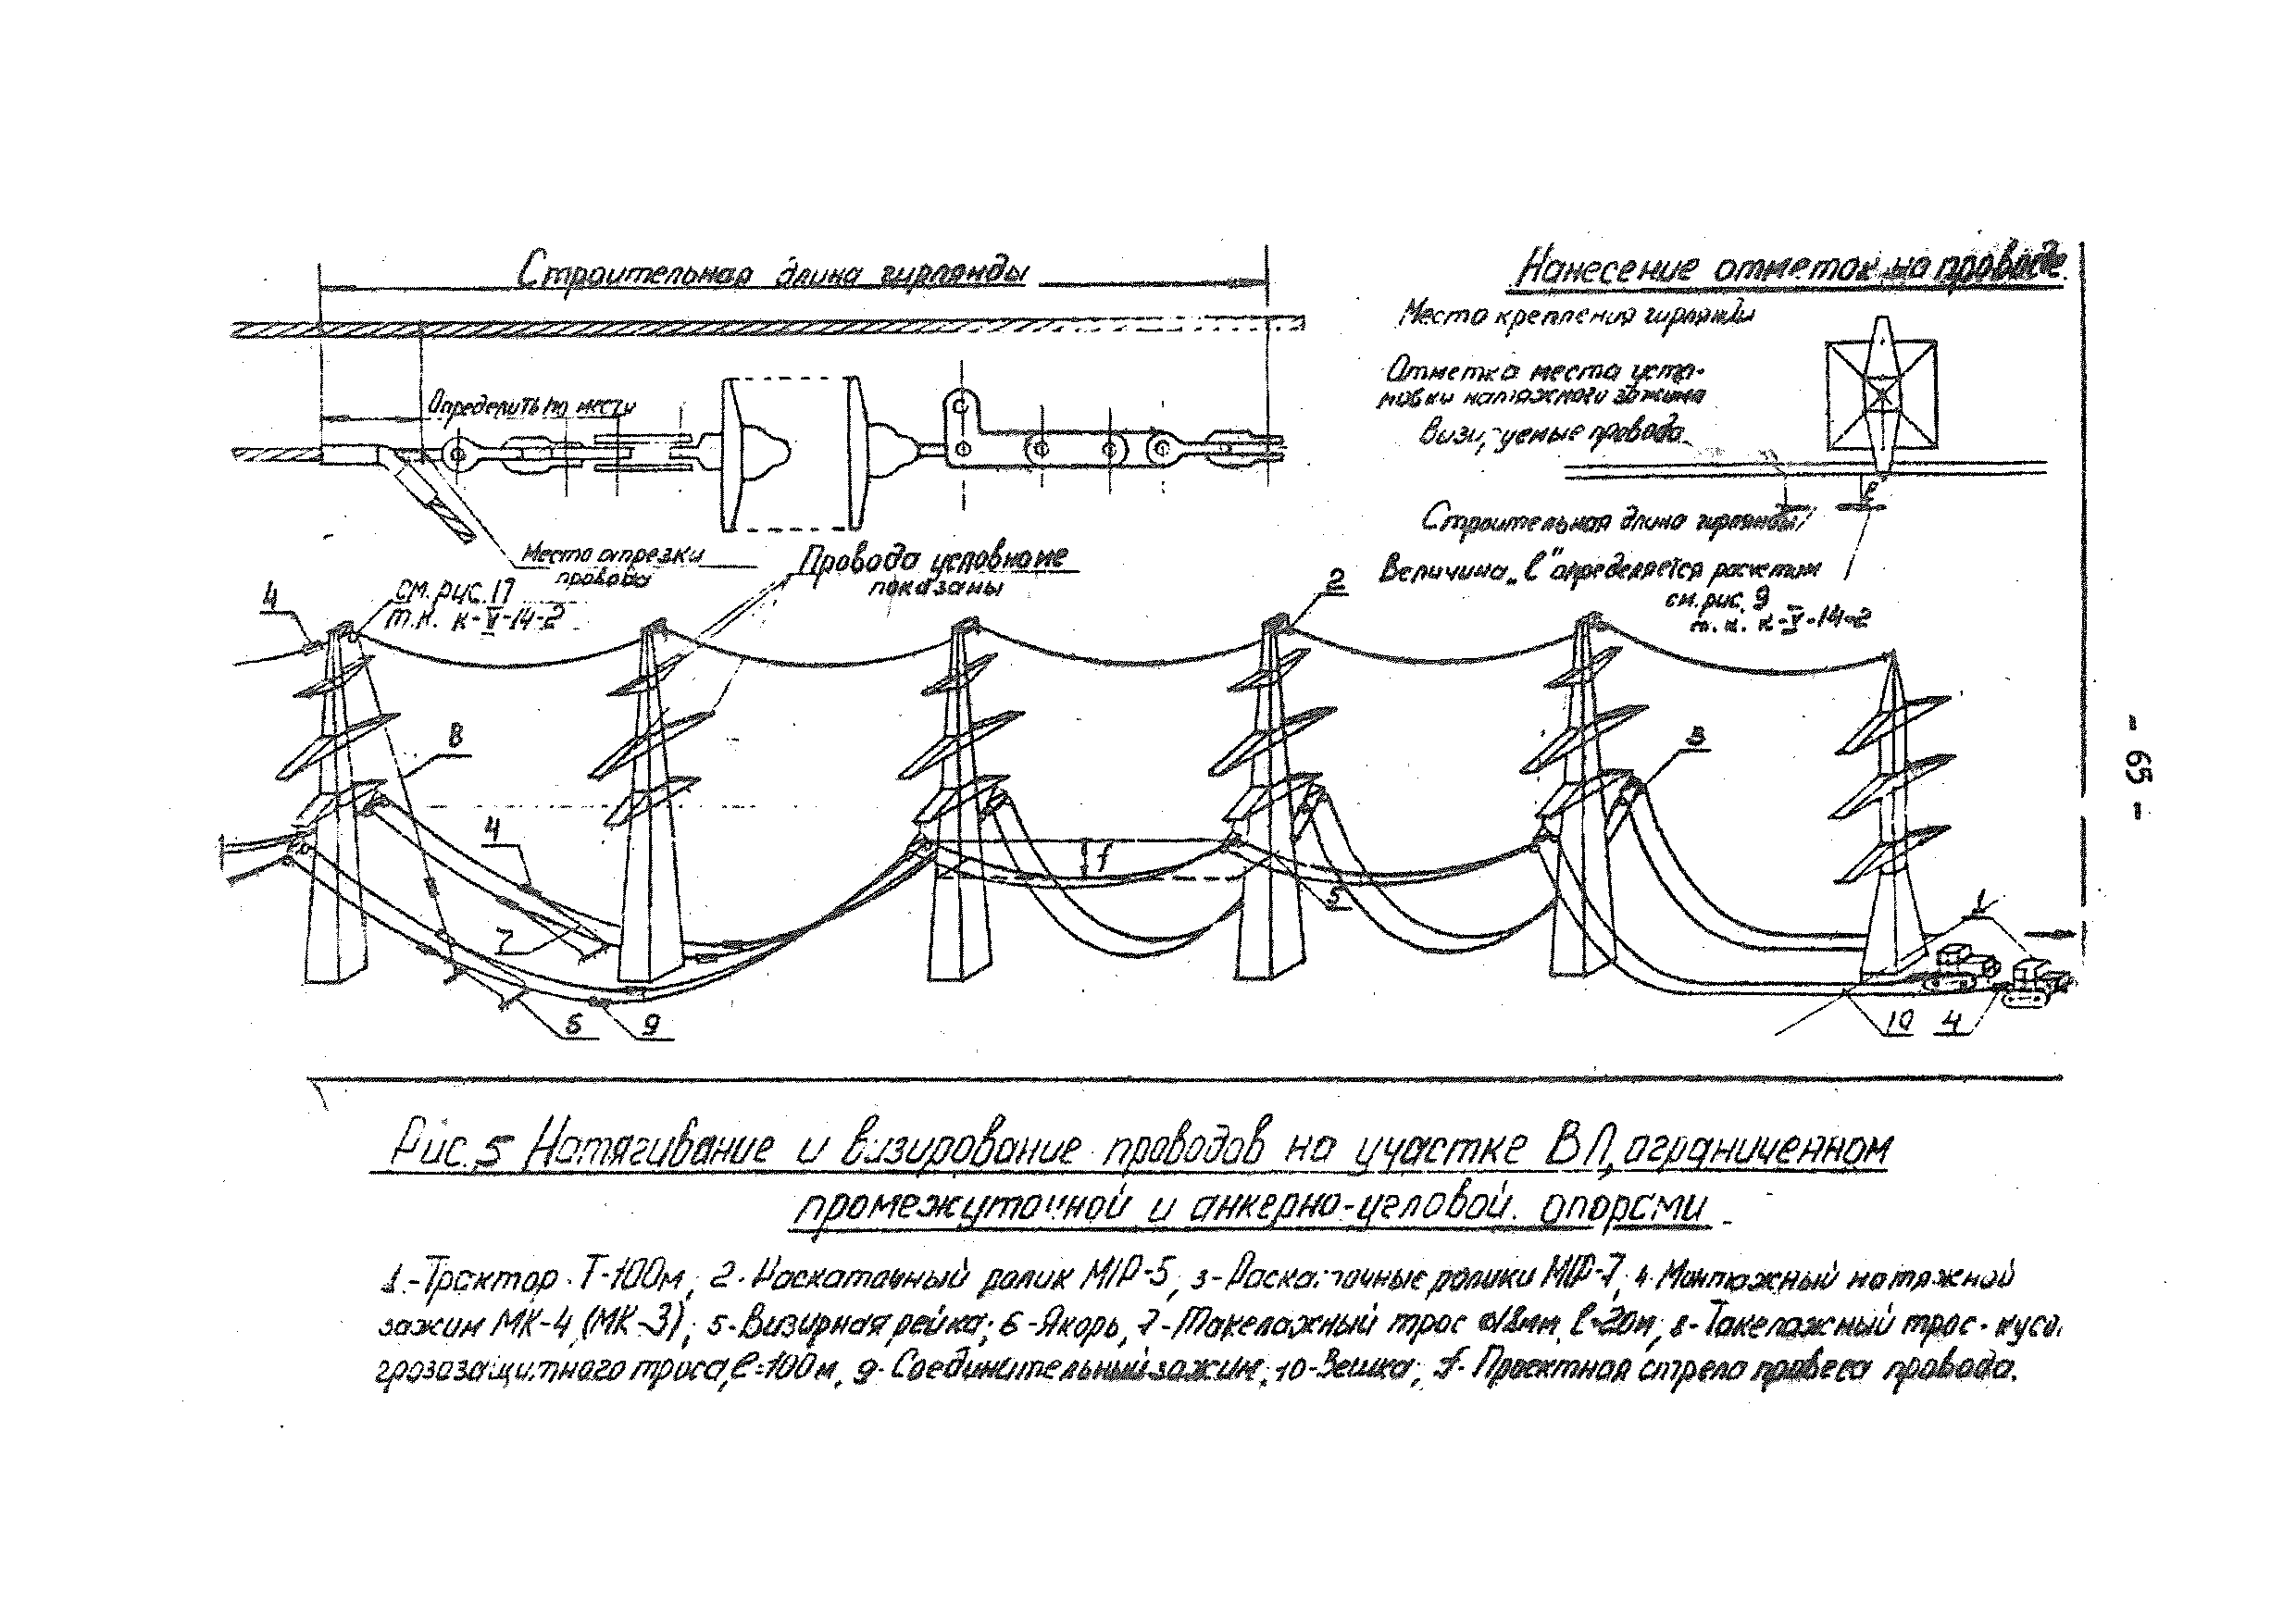 Строительная длина гирлянды
Нанесение отметок на проводе.
Место крепления гирлянды
Отметка места уста-
новки натяжного зажима
Визируемые провода
Определить по месту
Строительная длина гирлянды
Величина „ℓ" определяется расчетом
см. рис. 9
т. к. к-V-14-2
Место отрезки
провода
Провода условно не
показаны
см. рис. 17
т. к. к-V-14-2
4
2
8
3
4
f
5
7
1
6
9
10
4
- 65 -
Рис. 5 Натягивание и визирование проводов на участке ВЛ, ограниченном
промежуточной и анкерно-угловой опорами
1-Трактор Т-100м, 2-Раскаточный ролик М1Р-5, 3-Раскаточные ролики М1Р-7, 4-Монтажный натяжной
зажим МК-4 (МК-3); 5-Визирная рейка; 6-Якорь, 7-Такелажный трос ℓ=20м; 8-Такелажный трос-
грозозащитного троса, ℓ=100м, 9-Соединительный зажим; 10-Вешка; f-Проектная стрела провеса провода.